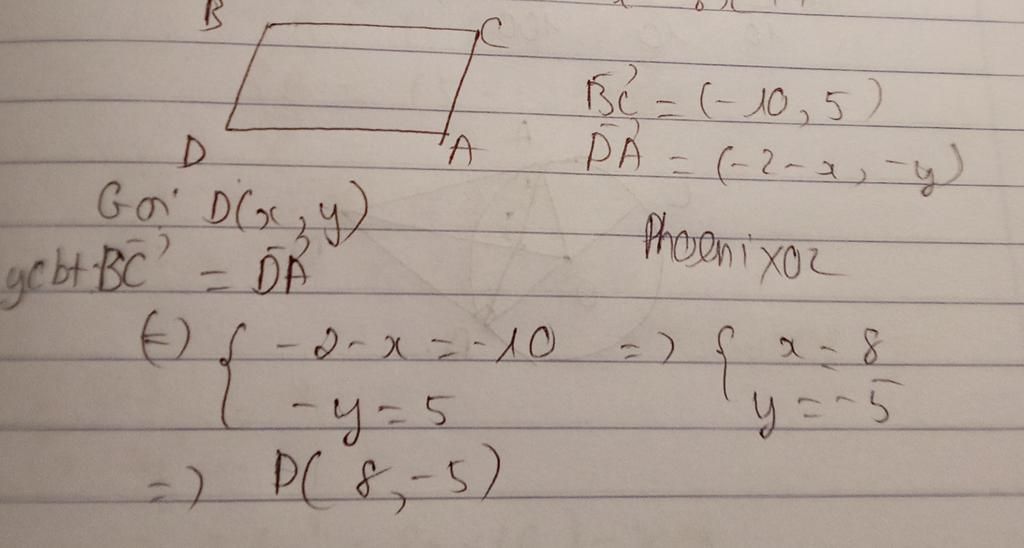 B
C
D
A
B⃗C⃗ = (-10, 5)
D⃗A⃗ = (-2-x, -y)
Gọi D(x, y)
ycbt BC⃗ = DA⃗
Phoenixoz
(=) { -2-x = -10 => { x = 8
-y = 5 y = -5
=> D( 8, -5)